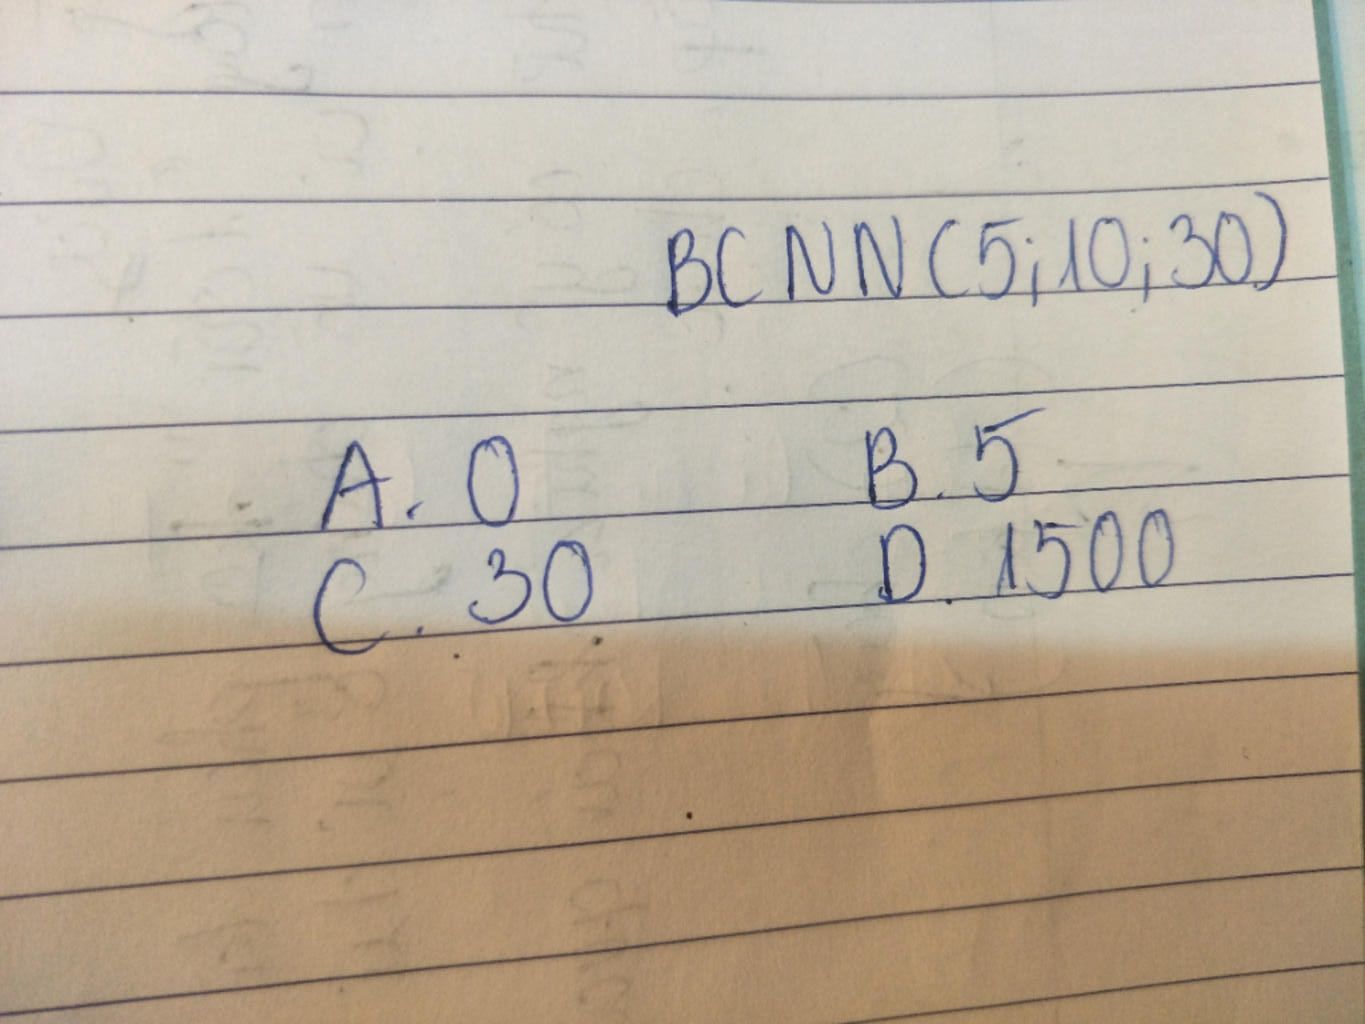 BCNN(5;10;30)
A. 0 B. 5
C. 30 D. 1500